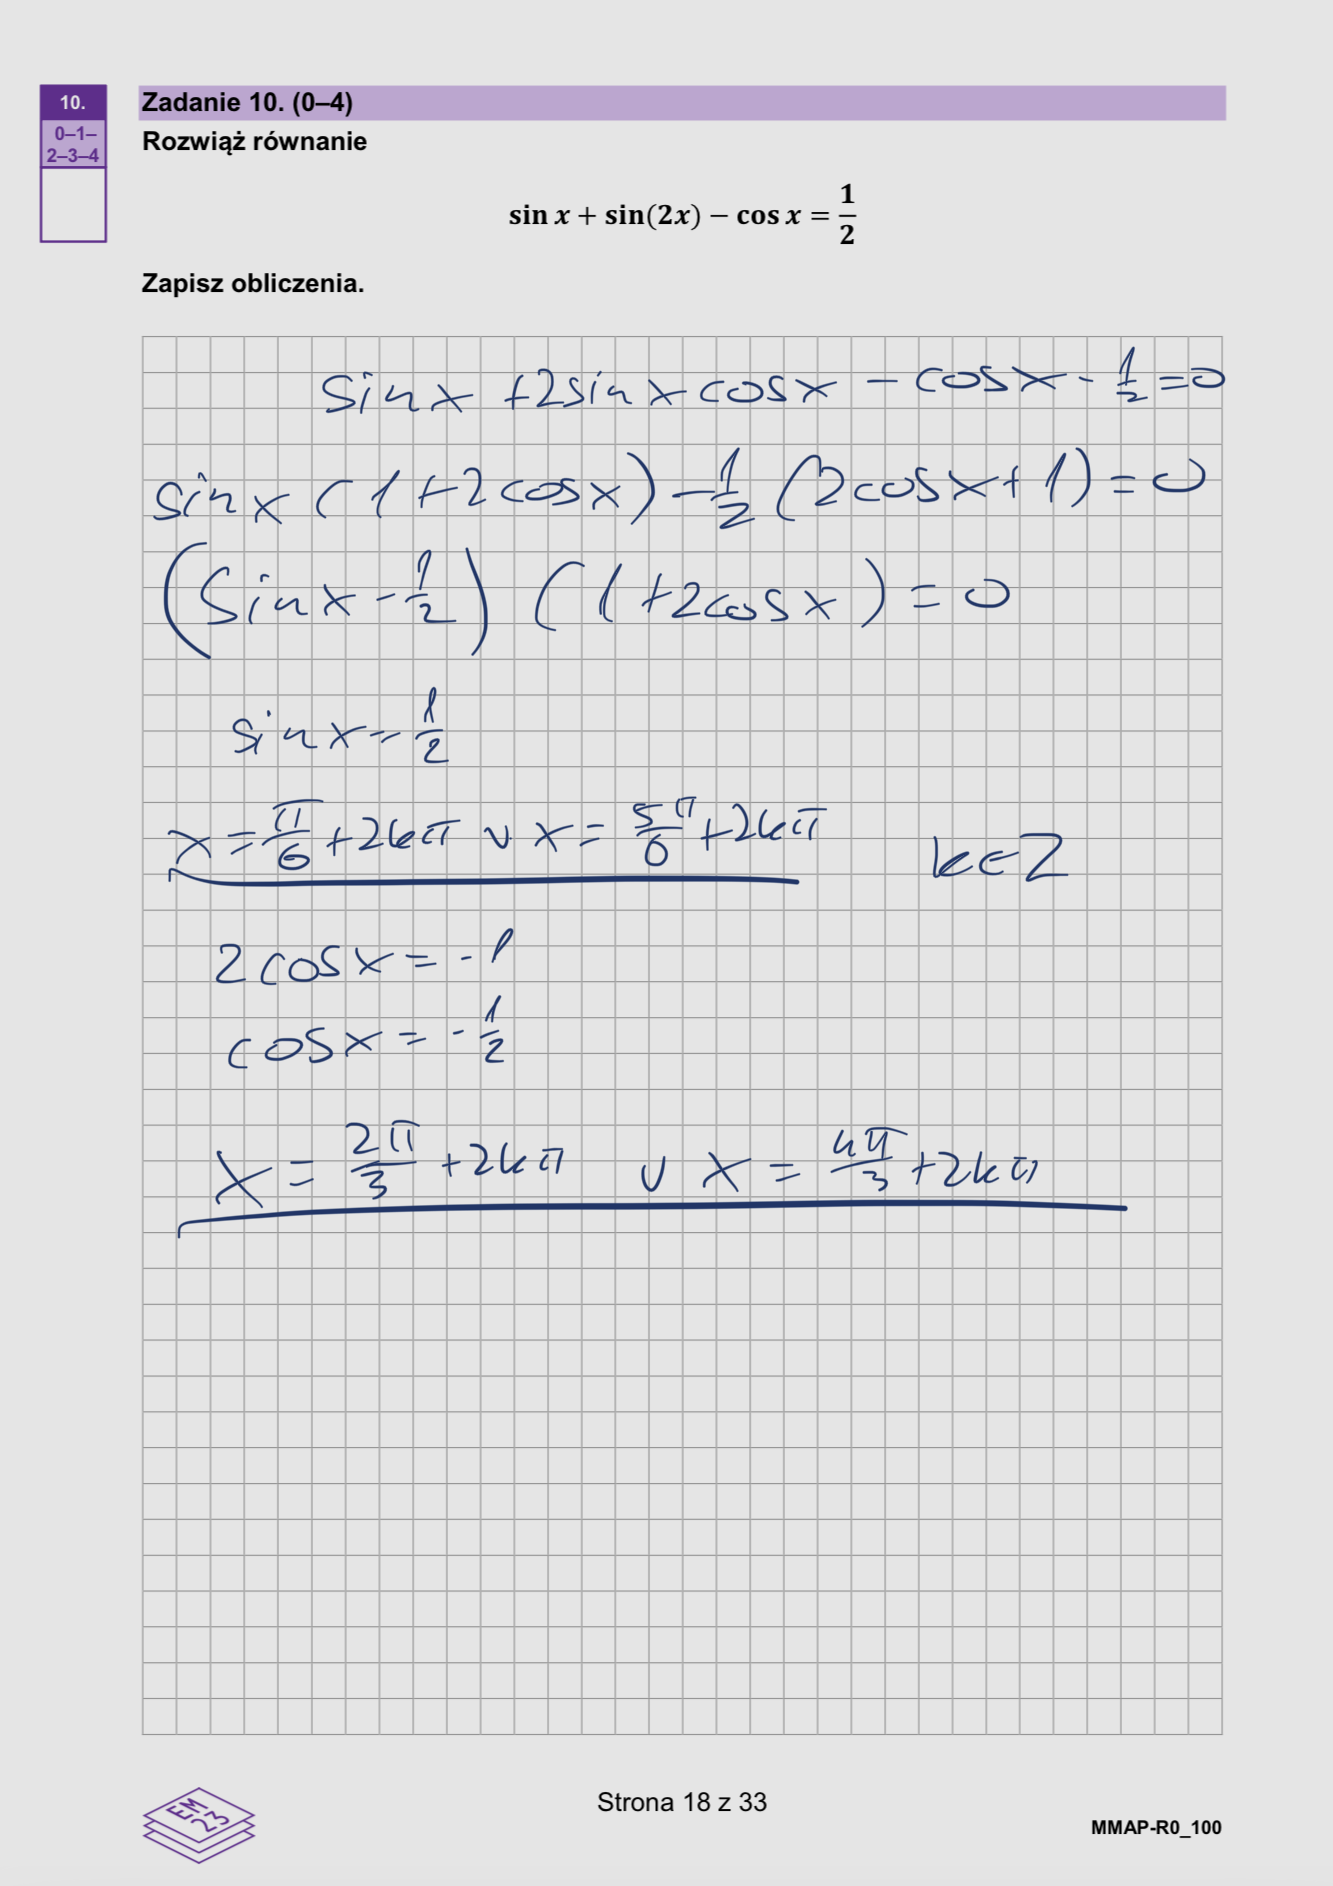 10.
0–1–
2–3–4
Zadanie 10. (0–4)
Rozwiąż równanie
sin x + sin(2x) − cos x = 1/2
Zapisz obliczenia.
sinx +2sinxcosx − cosx - 1/2 =0
sinx (1+2cosx) − 1/2 (2cosx+1) = 0
(sinx - 1/2) (1+2cosx) = 0
sinx = 1/2
x = π/6 +2kπ v x = 5π/6 +2kπ k∈Z
2cosx = -1
cosx = - 1/2
x = 2π/3 +2kπ v x = 4π/3 +2kπ
EM
23
Strona 18 z 33
MMAP-R0_100